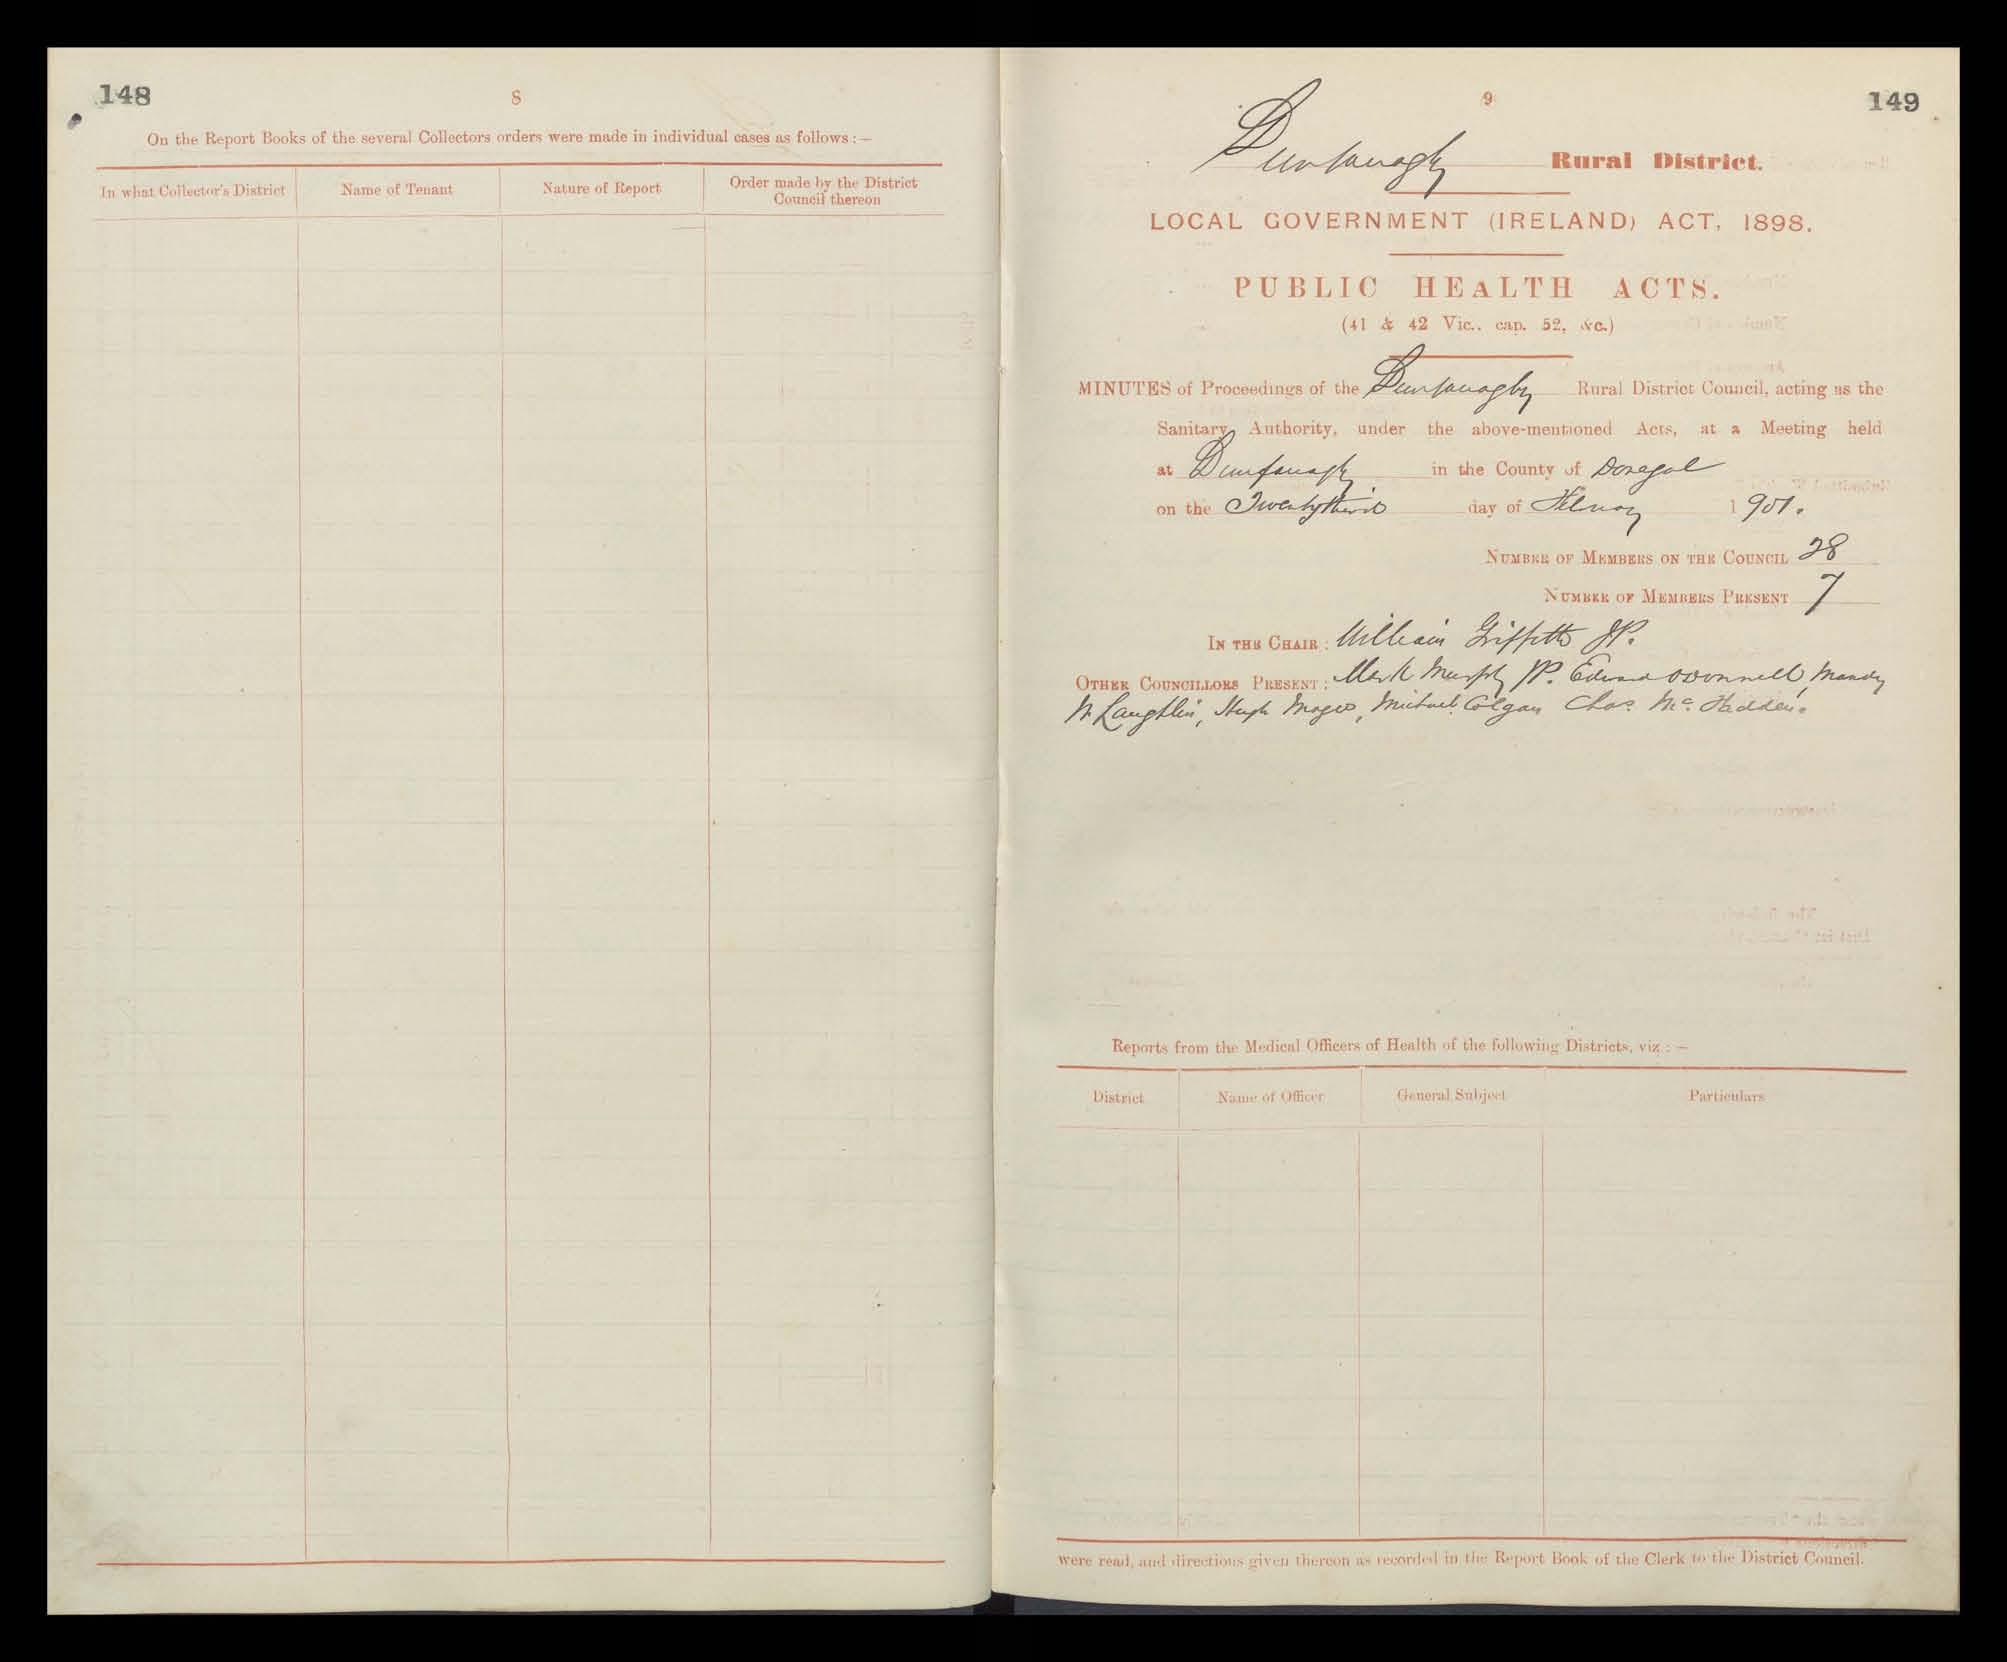 148
8
On the Report Books of the several Collectors orders were made in individual cases as follows :—
In what Collector's District
Name of Tenant
Nature of Report
Order made by the District
Council thereon
9
149
Dunfanaghy Rural District.
LOCAL GOVERNMENT (IRELAND) ACT, 1898.
PUBLIC HEALTH ACTS.
(41 & 42 Vic., cap. 52, &c.)
MINUTES of Proceedings of the Dunfanaghy Rural District Council, acting as the
Sanitary Authority, under the above-mentioned Acts, at a Meeting held
at Dunfanaghy in the County of Donegal
on the Twentythird day of Februay 1901.
NUMBER OF MEMBERS ON THE COUNCIL 28
NUMBER OF MEMBERS PRESENT 7
IN THE CHAIR : William Griffith JP.
OTHER COUNCILLORS PRESENT : Mark Murphy JP. Edward O'Donnell,
McLaughlin, Hugh Magee, Michael Colgan Chas. Mc. Fadden.
Reports from the Medical Officers of Health of the following Districts, viz :—
District
Name of Officer
General Subject
Particulars
were read, and directions given thereon as recorded in the Report Book of the Clerk to the District Council.